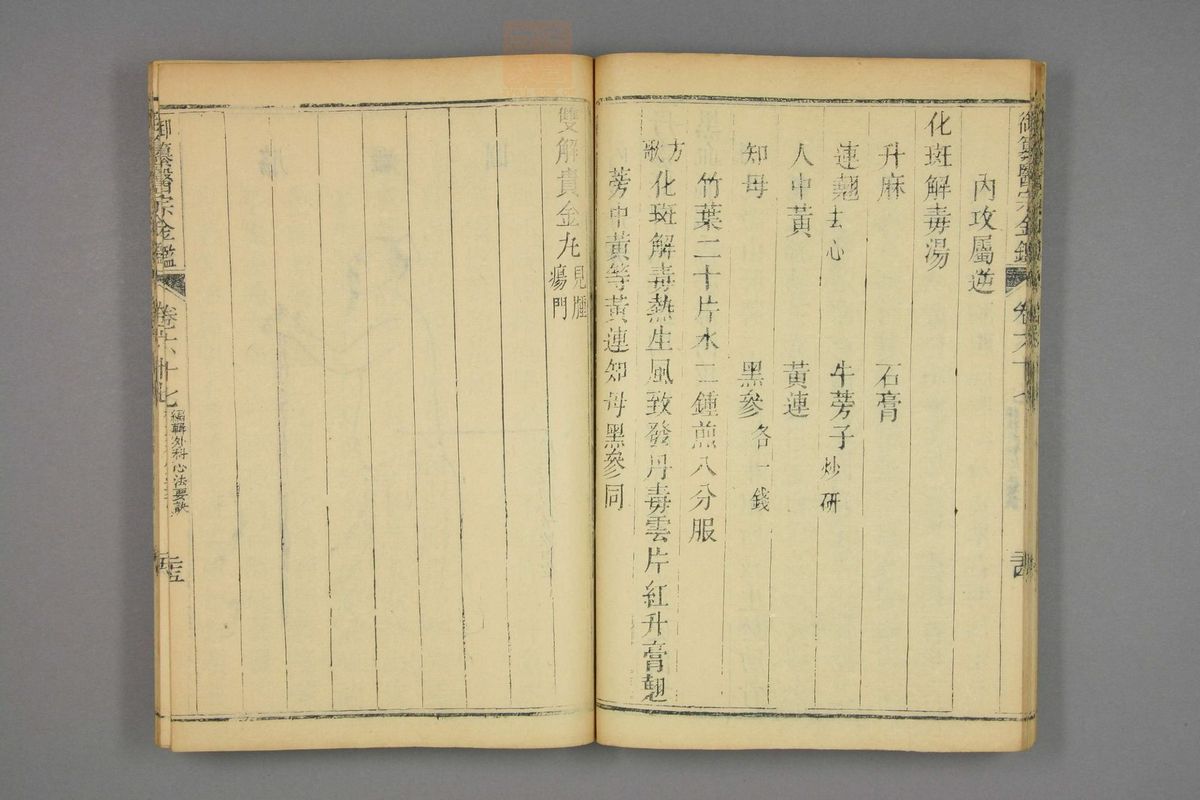 內攻屬逆
化斑解毒湯
升麻 石膏
連翹去心 牛蒡子炒研
人中黃 黃連
知母 黑參各一錢
竹葉二十片水二鍾煎八分服
方歌 化斑解毒熱生風致發丹毒雲片紅升膏翹
蒡中黃等黃連知母黑參同
雙解貴金丸見腫瘍門
御纂醫宗金鑑
編輯外科心法要訣
御纂醫宗金鑑